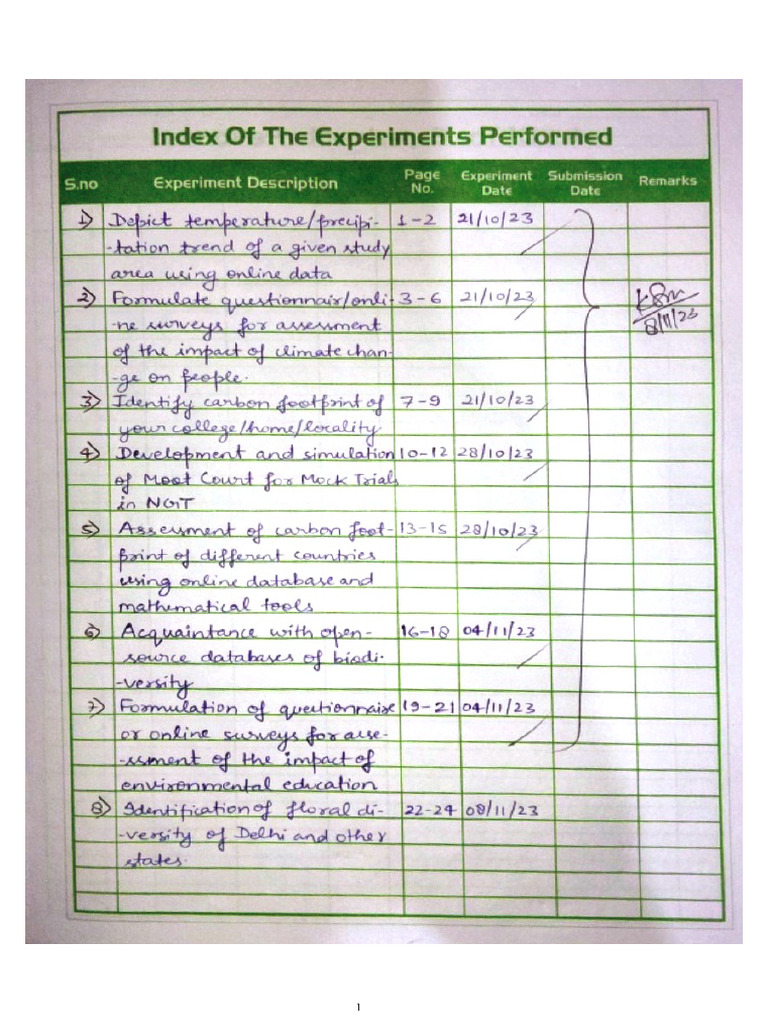 Index Of The Experiments Performed
S.no Experiment Description Page No. Experiment Date Submission Date Remarks
1) Depict temperature/precipi- 1-2 21/10/23
-tation trend of a given study
area using online data
2) Formulate questionnair/onli- 3-6 21/10/23
-ne surveys for assessment
of the impact of climate chan-
-ge on people.
8/11/23
3) Identify carbon footprint of 7-9 21/10/23
your college/home/locality
4) Development and simulation 10-12 28/10/23
of Moot Court for Mock Trials
in NGT
5) Assessment of carbon foot- 13-15 28/10/23
print of different countries
using online database and
mathematical tools
6) Acquaintance with open- 16-18 04/11/23
source databases of biodi-
-versity
7) Formulation of questionnaire 19-21 04/11/23
or online surveys for asse-
-ssment of the impact of
environmental education
8) Identification of floral di- 22-24 08/11/23
-versity of Delhi and other
states.
1